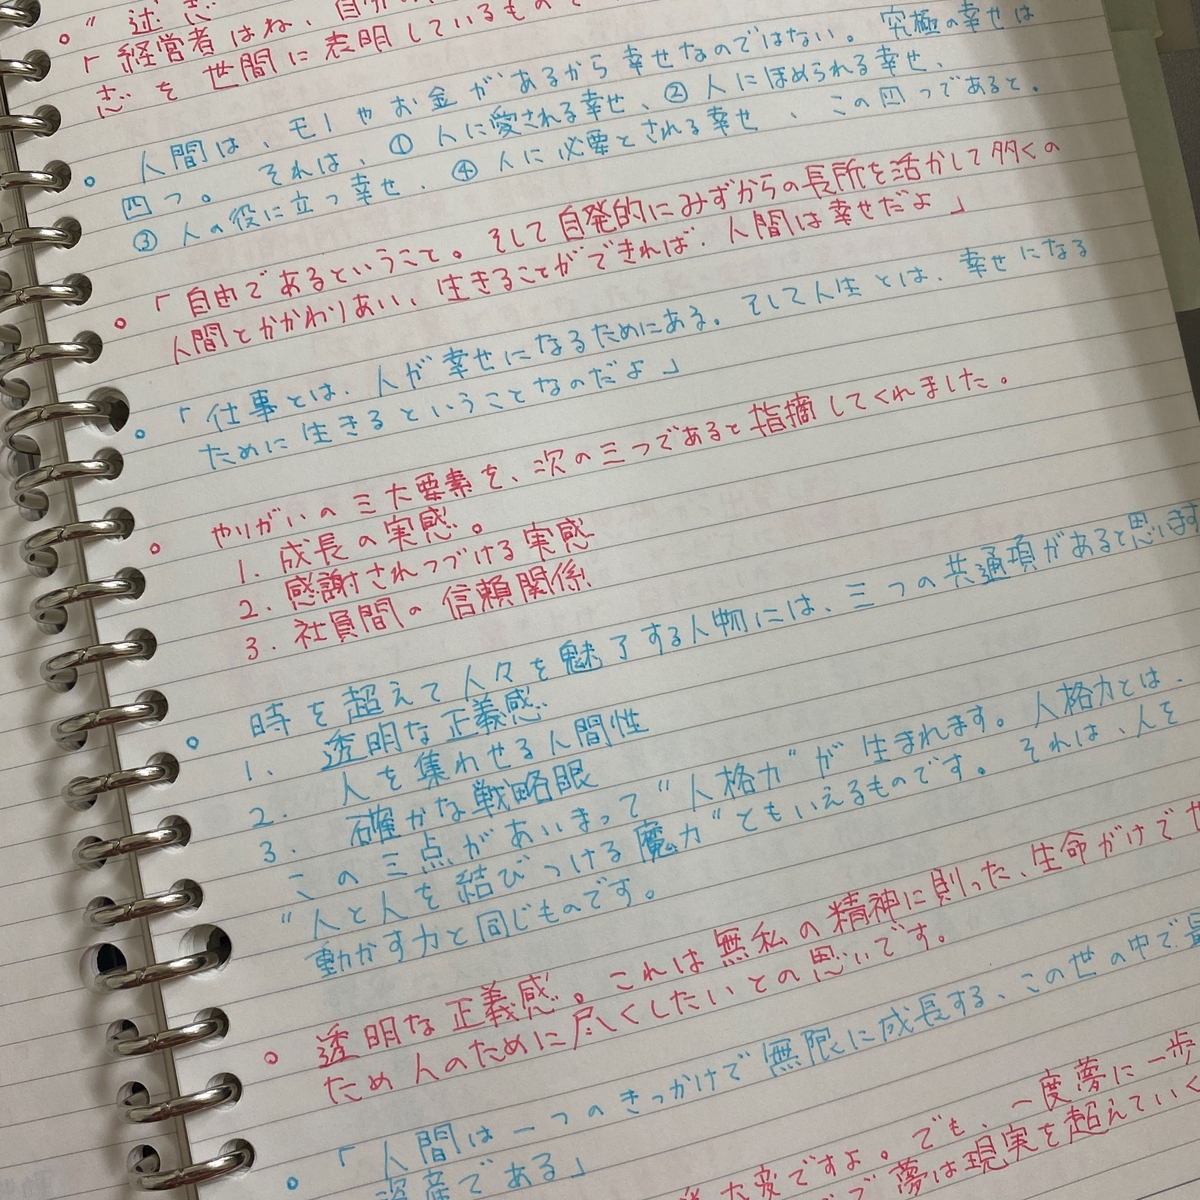 。"述志
「経営者はね、自分
志を世間に表明しているもので
。人間は、モノやお金があるから幸せなのではない。究極の幸せは
四つ。それは、①人に愛される幸せ、②人にほめられる幸せ、
③人の役に立つ幸せ、④人に必要とされる幸せ、この四つであると。
。「自由であるということ。そして自発的にみずからの長所を活かして多くの
人間とかかわりあい、生きることができれば、人間は幸せだよ」
。「仕事とは、人が幸せになるためにある。そして人生とは、幸せになる
ために生きるということなのだよ」
。やりがいの三大要素を、次の三つであると指摘してくれました。
1. 成長の実感。
2. 感謝されつづける実感
3. 社員間の信頼関係
。時を超えて人々を魅了する人物には、三つの共通項があると思います
1. 透明な正義感
2. 人を集わせる人間性
3. 確かな戦略眼
この三点があいまって"人格力"が生まれます。人格力とは、
"人と人を結びつける魔力"ともいえるものです。それは、人を
動かす力と同じものです。
。透明な正義感。これは無私の精神に則った、生命がけで
ため人のために尽くしたいとの思いです。
。「人間は一つのきっかけで無限に成長する、この世の中で最
資産である」
大変ですよ。でも、一度夢に一歩
夢は現実を超えていく